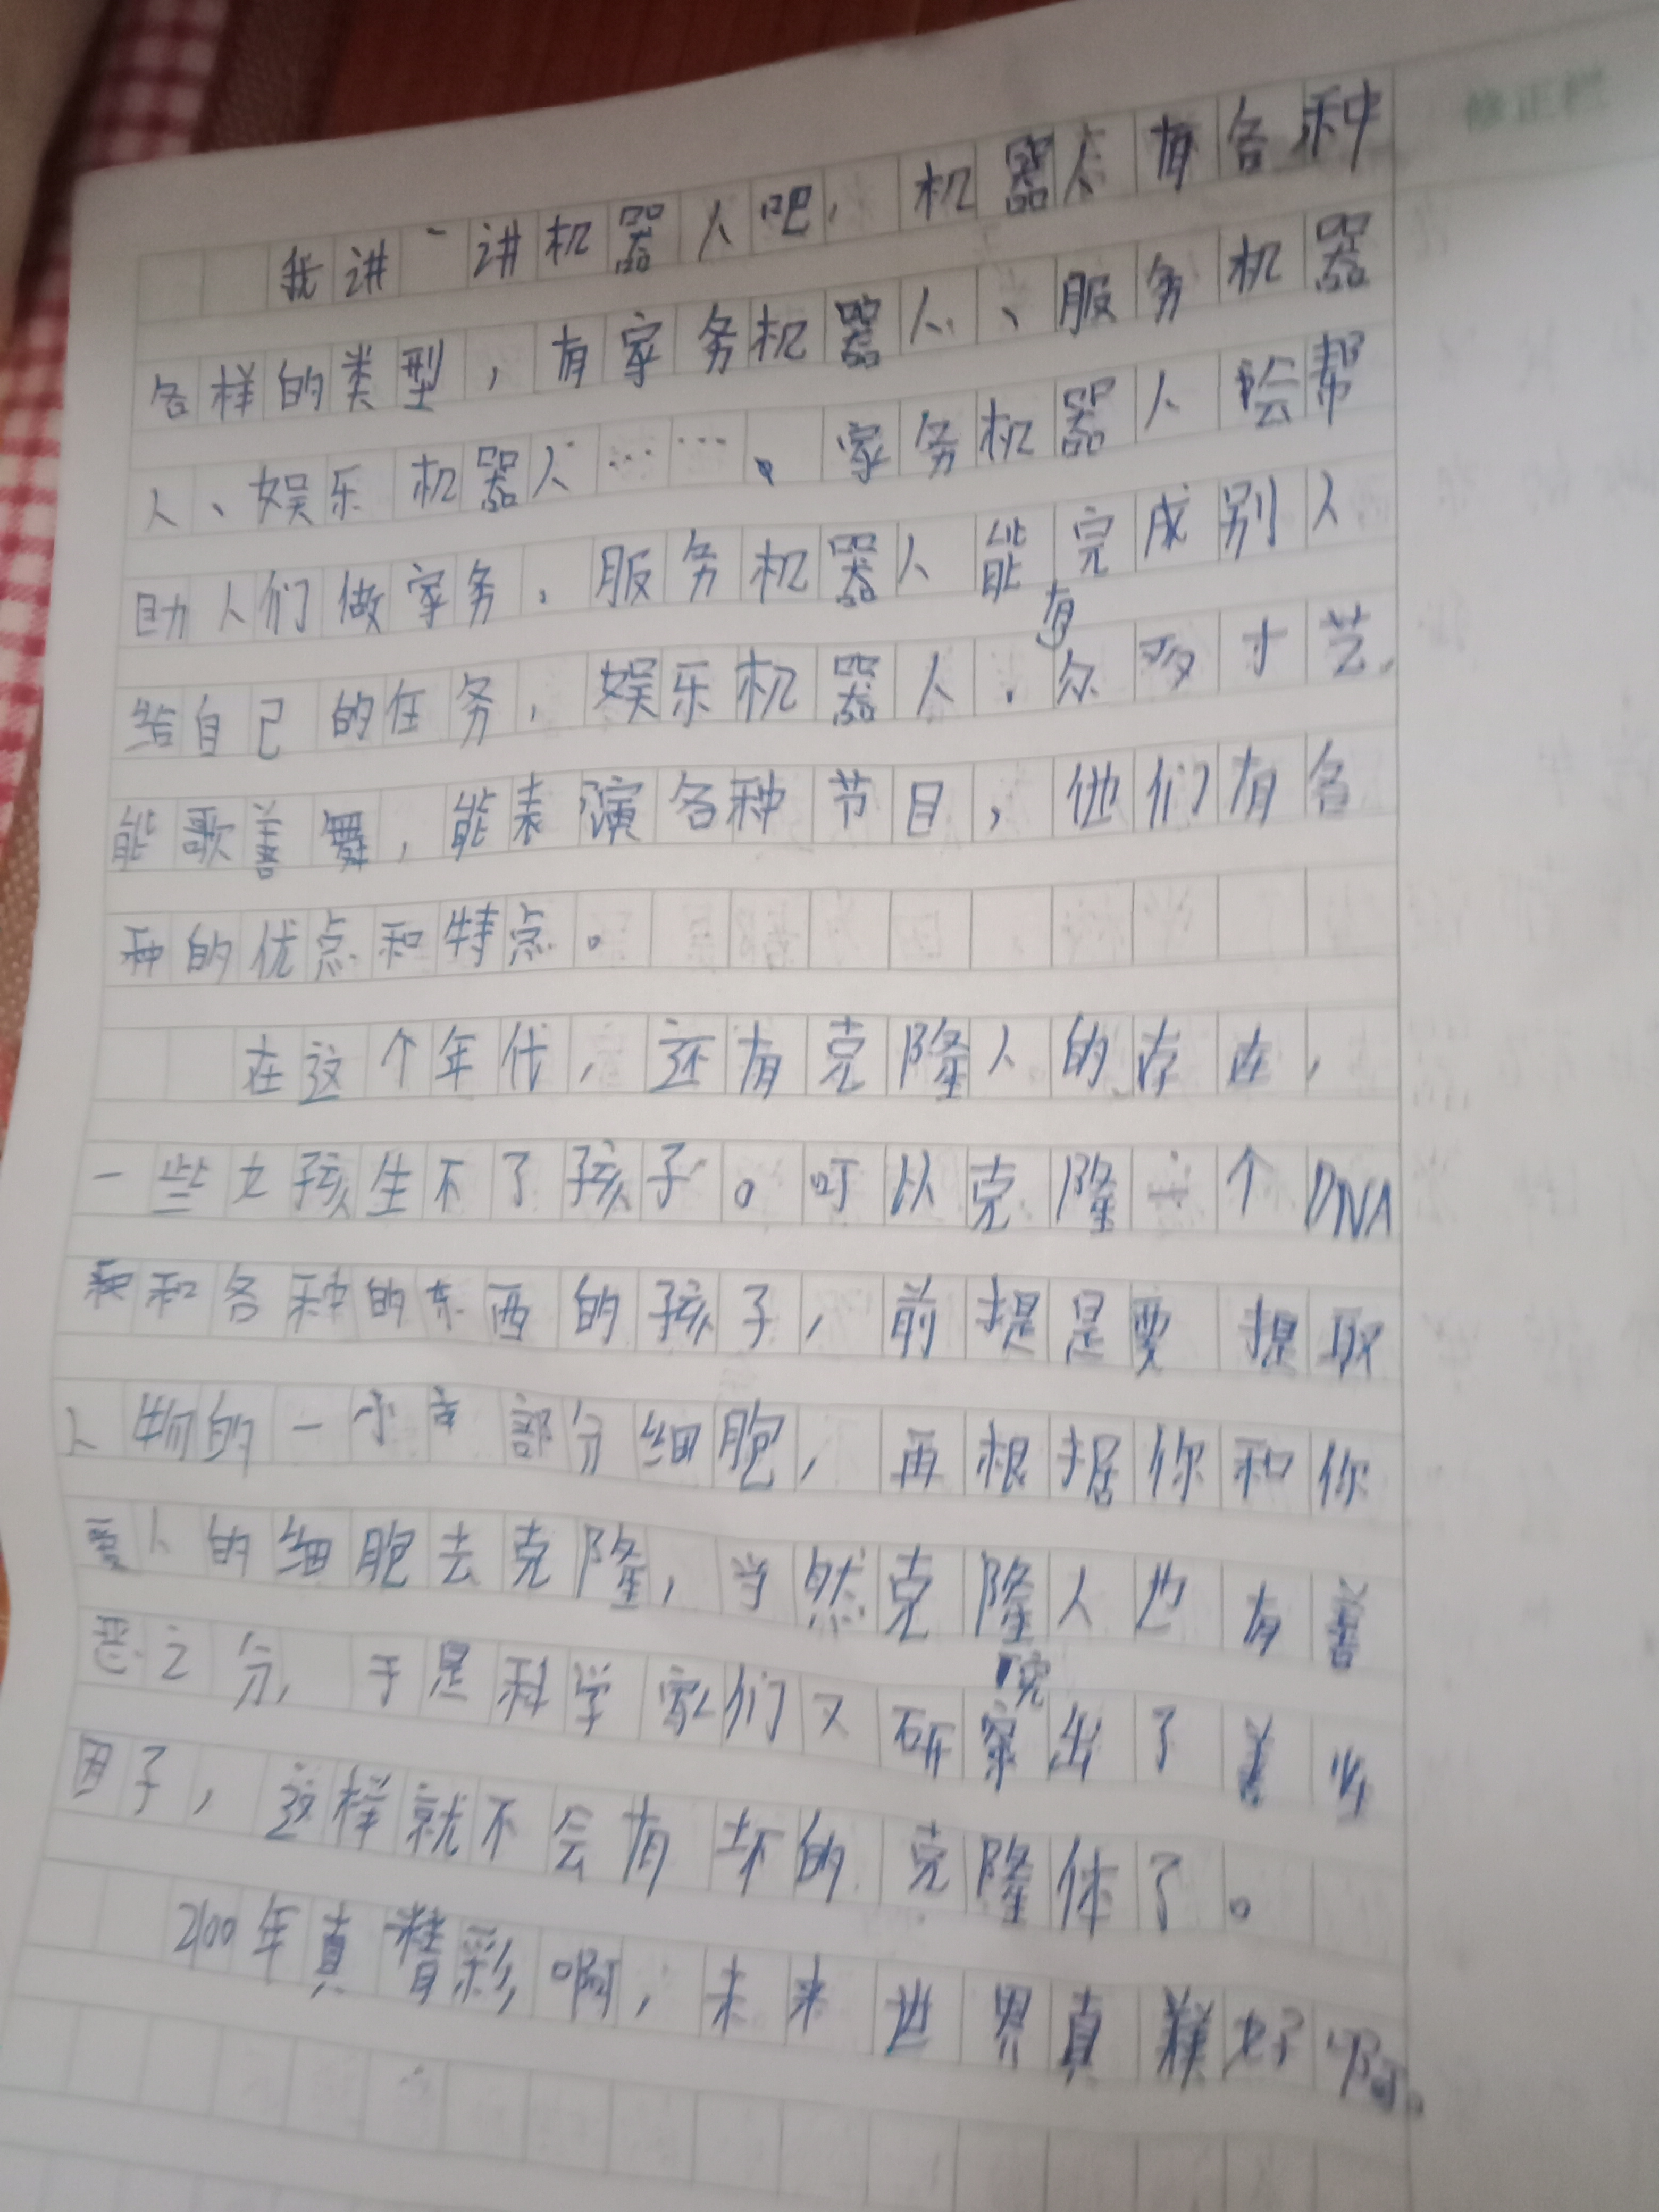 我讲一讲机器人吧，机器人有各种
各样的类型，有家务机器人、服务机器
人、娱乐机器人……、家务机器人会帮
助人们做家务，服务机器人能完成别人
给自己的任务，娱乐机器人，有众多才艺，
能歌善舞，能表演各种节目，他们有各
种的优点和特点。
在这个年代，还有克隆人的存在，
一些女孩生不了孩子。可以克隆一个DNA
和各种的东西的孩子，前提是要提取
人物的一小部分细胞，再根据你和你
爱人的细胞去克隆，当然克隆人也有善
恶之分，于是科学家们又研究出了善业
因子，这样就不会有坏的克隆体了。
2100年真精彩啊，未来世界真美好啊。